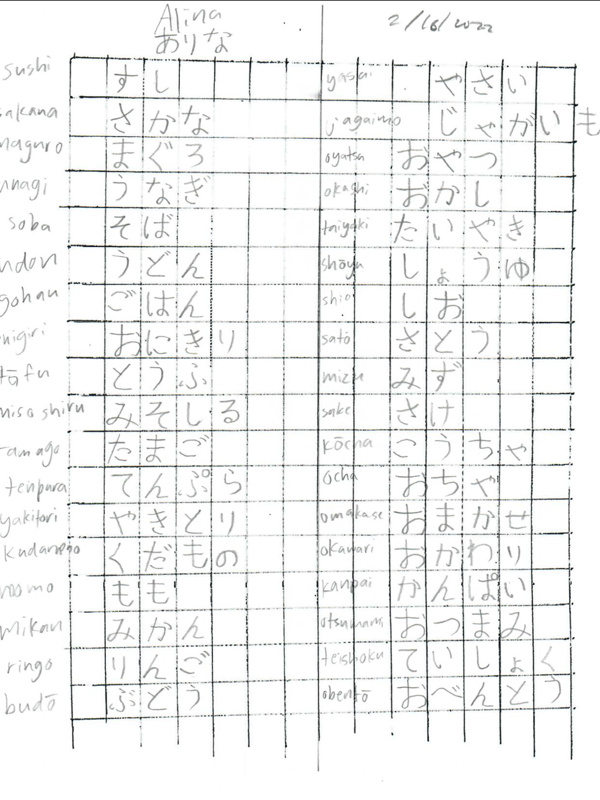 Alina
ありな
2/16/2022
sushi すし
sakana さかな
maguro まぐろ
unagi うなぎ
soba そば
udon うどん
gohan ごはん
nigiri おにぎり
tōfu とうふ
miso shiru みそしる
tamago たまご
tenpura てんぷら
yakitori やきとり
くだもの
momo もも
mikan みかん
ringo りんご
budō ぶどう
yasai やさい
jagaimo じゃがいも
oyatsu おやつ
okashi おかし
taiyaki たいやき
shōyu しょうゆ
shio しお
satō さとう
mizu みず
sake さけ
kōcha こうちゃ
ocha おちゃ
omakase おまかせ
okawari おかわり
kanpai かんぱい
otsumami おつまみ
teishoku ていしょく
obentō おべんとう